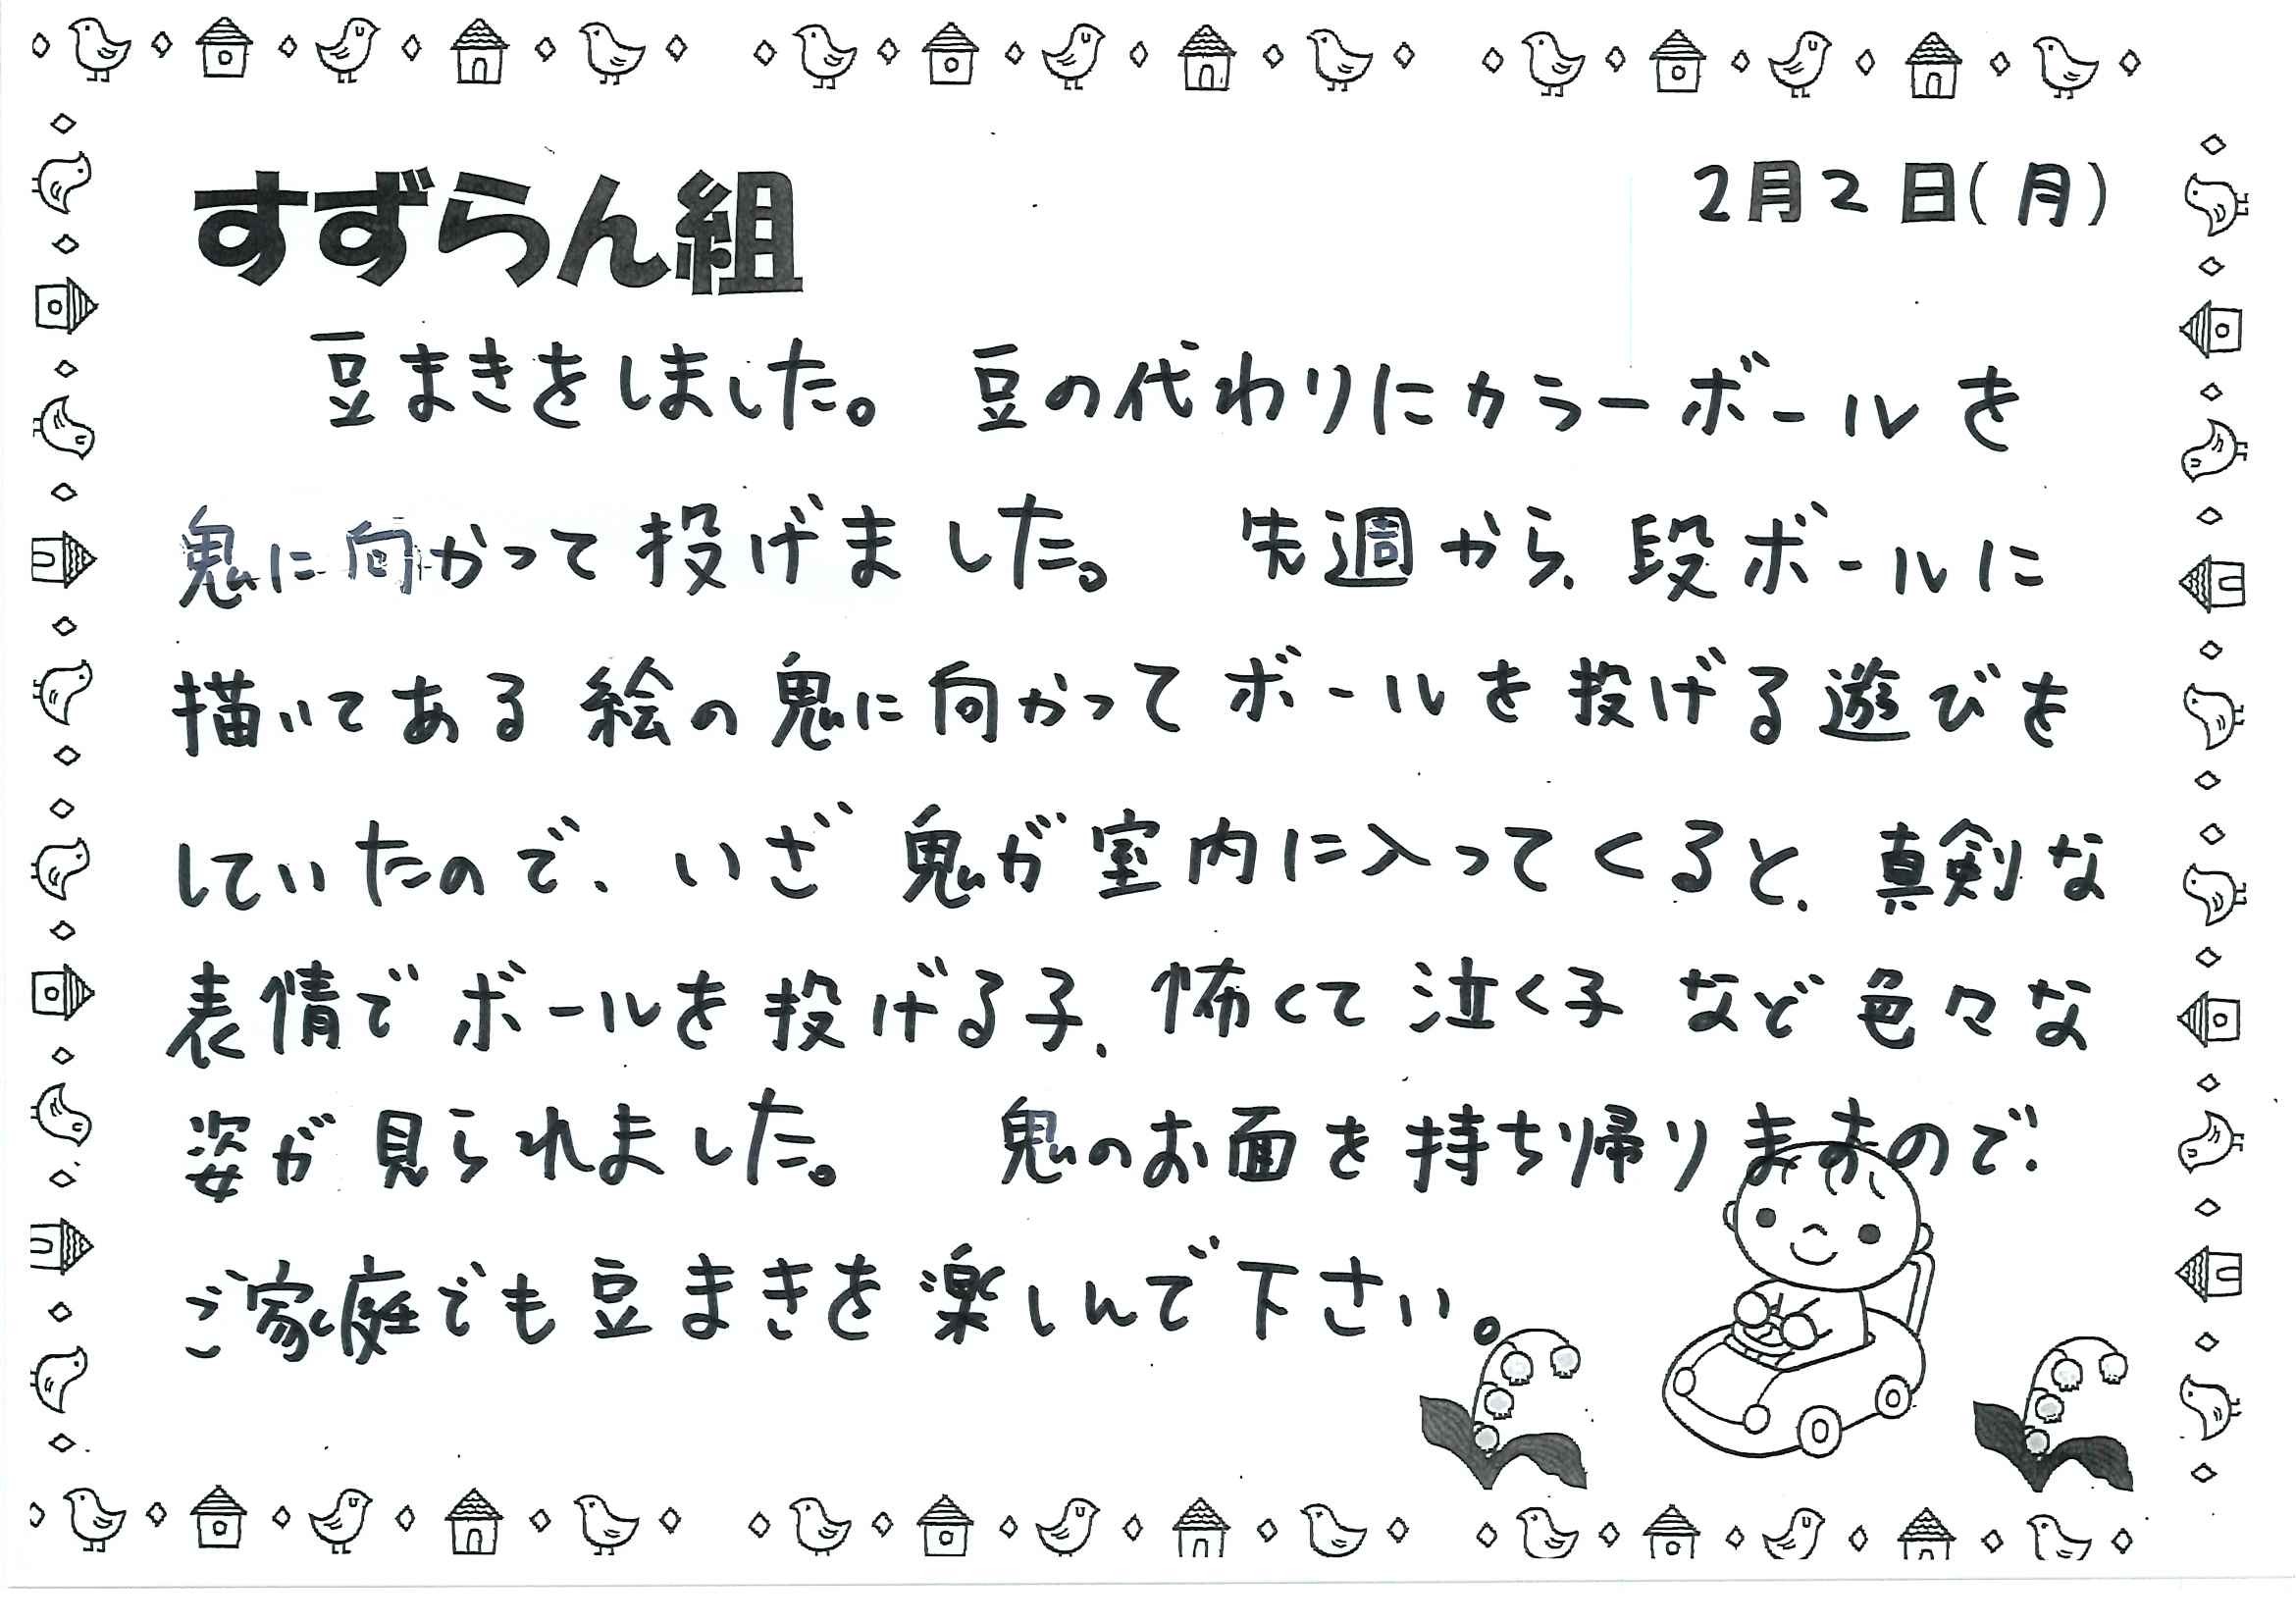 すずらん組
2月2日(月)
豆まきをしました。 豆の代わりにカラーボールを
鬼に向かって投げました。 先週から、段ボールに
描いてある絵の鬼に向かってボールを投げる遊びを
していたので、いざ鬼が室内に入ってくると、真剣な
表情でボールを投げる子、怖くて泣く子など色々な
姿が見られました。 鬼のお面を持ち帰りますので、
ご家庭でも豆まきを楽しんで下さい。